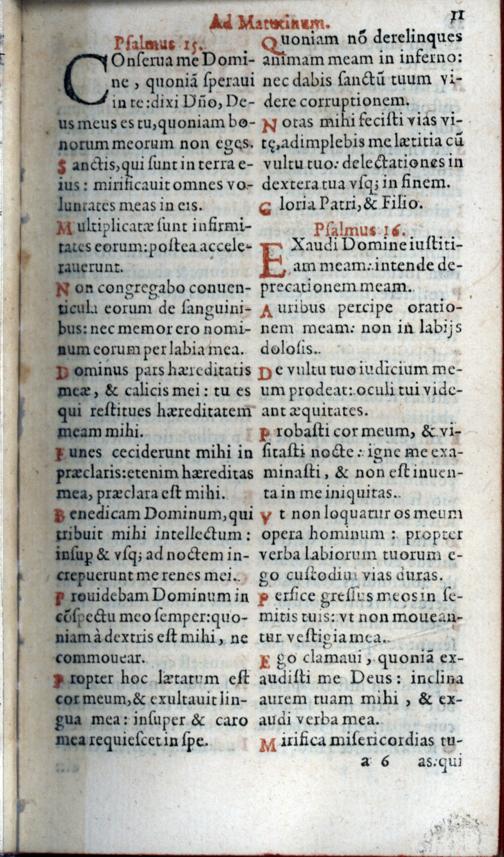 Ad Matutinum.
11
Psalmus 15.
COnserua me Domi-
ne, quoniã speraui
in te: dixi Dño, De-
us meus es tu, quoniam bo-
norum meorum non eges.
Sanctis, qui sunt in terra e-
ius: mirificauit omnes vo-
luntates meas in eis.
Multiplicatæ sunt infirmi-
tates eorum: postea accele-
rauerunt.
Non congregabo conuen-
ticula eorum de sanguini-
bus: nec memor ero nomi-
num eorum per labia mea.
Dominus pars hæreditatis
meæ, & calicis mei: tu es
qui restitues hæreditatem
meam mihi.
Funes ceciderunt mihi in
præclaris: etenim hæreditas
mea, præclara est mihi.
Benedicam Dominum, qui
tribuit mihi intellectum:
insup & vsq; ad noctem in-
crepuerunt me renes mei.
Prouidebam Dominum in
cõspectu meo semper: quo-
niam à dextris est mihi, ne
commouear.
Propter hoc lætatum est
cor meum, & exultauit lin-
gua mea: insuper & caro
mea requiescet in spe.
Quoniam nõ derelinques
animam meam in inferno:
nec dabis sanctũ tuum vi-
dere corruptionem.
Notas mihi fecisti vias vi-
tę, adimplebis me lætitia cũ
vultu tuo: delectationes in
dextera tua vsq; in finem.
Gloria Patri, & Filio.
Psalmus 16.
EXaudi Domine iustiti-
am meam: intende de-
precationem meam.
Auribus percipe oratio-
nem meam: non in labijs
dolosis.
De vultu tuo iudicium me-
um prodeat: oculi tui vide-
ant æquitates.
Probasti cor meum, & vi-
sitasti nocte: igne me exa-
minasti, & non est inuen-
ta in me iniquitas.
Vt non loquatur os meum
opera hominum: propter
verba labiorum tuorum e-
go custodiui vias duras.
Perfice gressus meos in se-
mitis tuis: vt non mouean-
tur vestigia mea.
Ego clamaui, quoniã ex-
audisti me Deus: inclina
aurem tuam mihi, & ex-
audi verba mea.
Mirifica misericordias tu-
a 6 as: qui